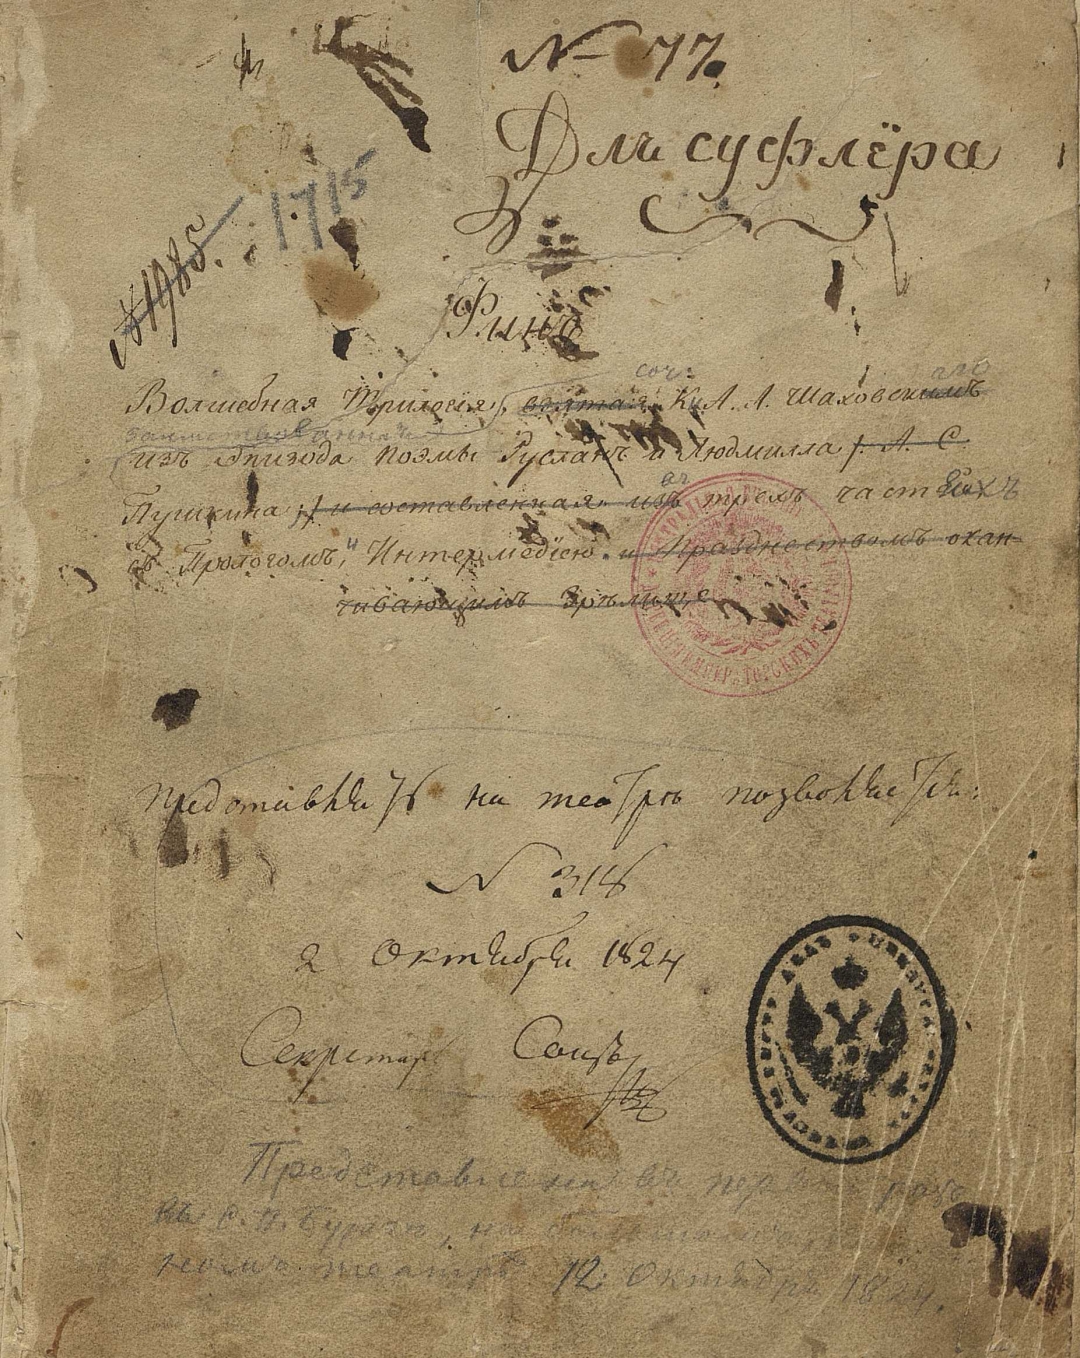 № 77.
Для суфлёра
1715
№ 1985.
Финъ
соч: аго
Волшебная Трилогія, взятая К. А. А. Шаховскимъ
заимствованная
изъ Эпизода поэмы Русланъ и Людмилла /. А. С.
Пушкина ./ и составленная изъ трехъ частей
съ Прологомъ, и Интермедіею и Празднествомъ окан-
чивающимъ Зрѣлище
Представлять на театрѣ позволяется:
№ 318
2 Октября 1824
Секретарь Соцъ
Представлена въ первый разъ
въ С. П. Бургѣ, на большомъ
номъ театрѣ 12 Октября 1824.